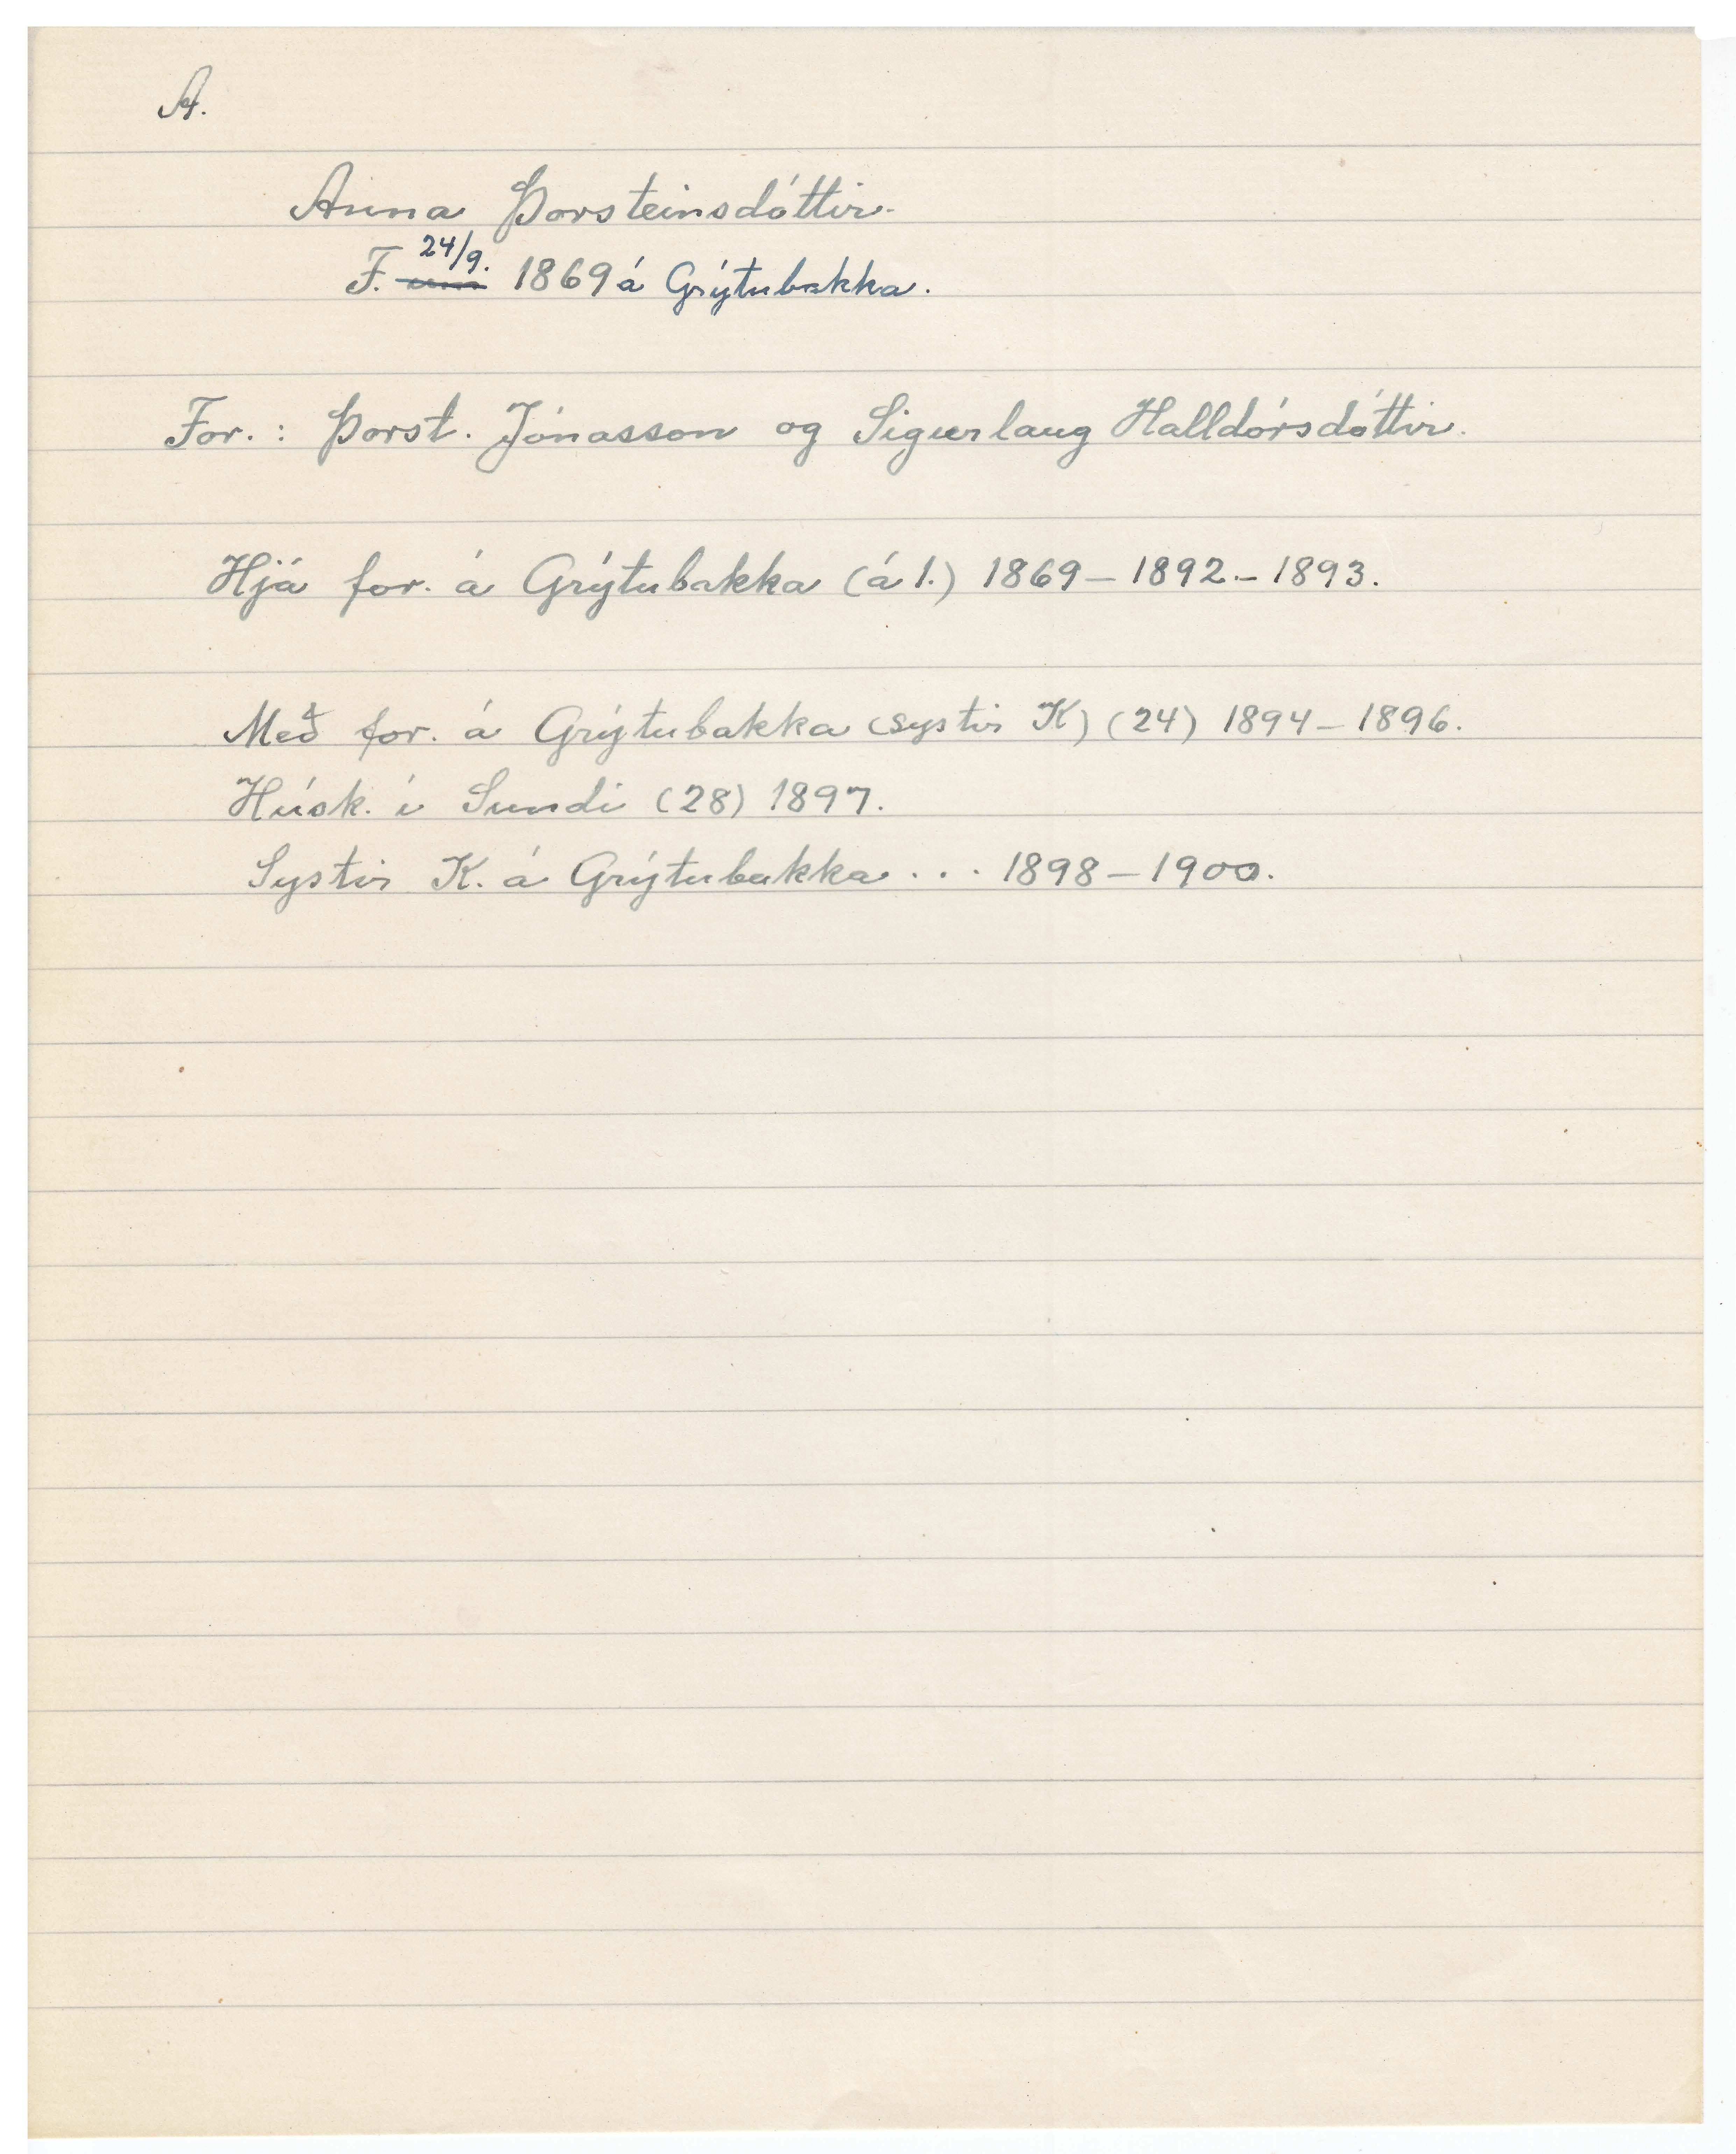 A.
Anna Þorsteinsdóttir.
F. 24/9. 1869 á Grýtubakka.
For.: Þorst. Jónasson og Sigurlaug Halldórsdóttir.
Hjá for. á Grýtubakka (á 1.) 1869 – 1892. – 1893.
Með for. á Grýtubakka (systir K) (24) 1894 – 1896.
Húsk. í Sundi (28) 1897.
Systir K. á Grýtubakka . . . 1898 – 1900.